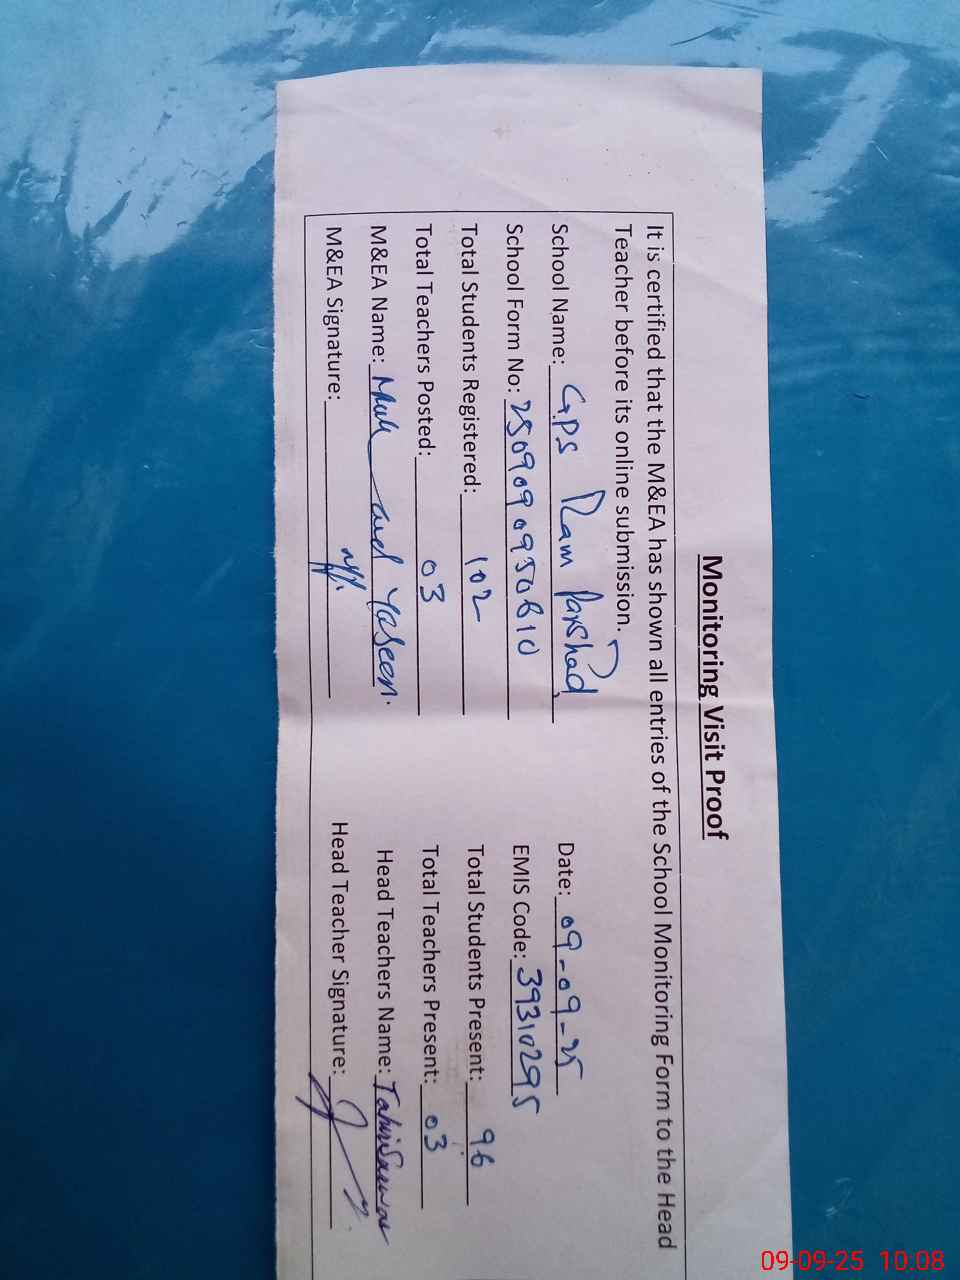 Monitoring Visit Proof
It is certified that the M&EA has shown all entries of the School Monitoring Form to the Head
Teacher before its online submission.
School Name: GPS Ram Parshad Date: 09-09-25
School Form No: 25090909350610 EMIS Code: 39310295
Total Students Registered: 102 Total Students Present: 96
Total Teachers Posted: 03 Total Teachers Present: 03
M&EA Name: Yaseen. Head Teachers Name: Tahir Sarwar
M&EA Signature: Head Teacher Signature:
09-09-25 10:08